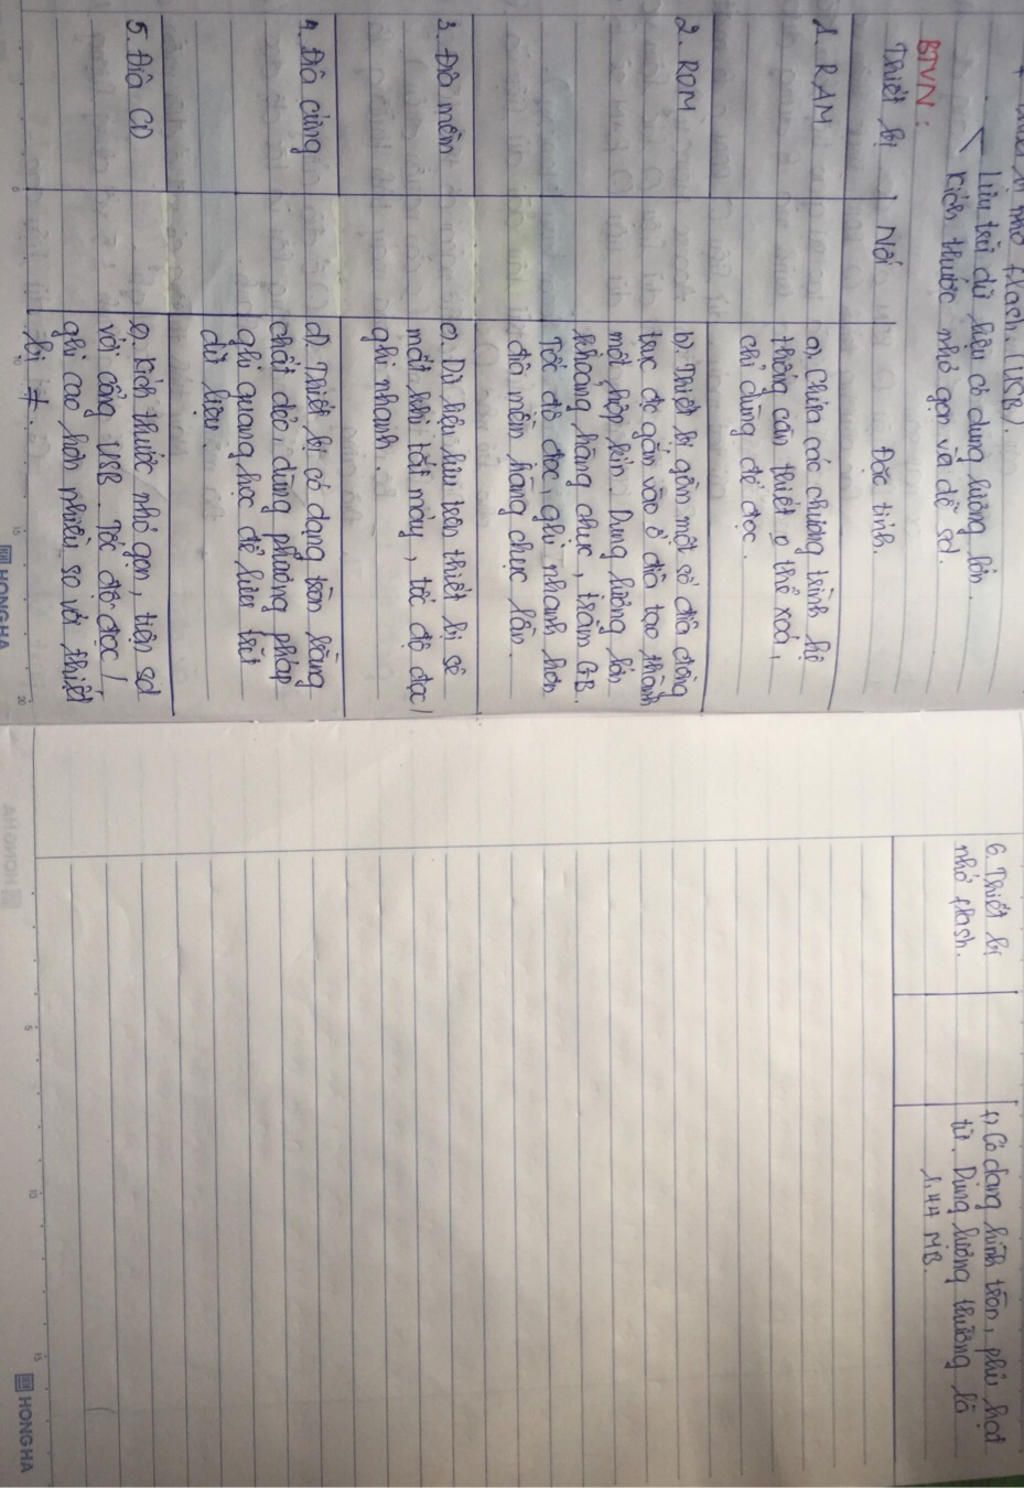 + Thiết bị nhớ flash. (USB).
Lưu trữ dữ liệu có dung lượng lớn.
Kích thước nhỏ gọn và dễ sd.
BTVN:
Thiết bị Nối Đặc tính.
1. RAM a). Chứa các chương trình hệ
thống cần thiết o thể xoá,
chỉ dùng để đọc.
2. ROM b). Thiết bị gồm một số đĩa đồng
trục đc gắn vào ổ đĩa tạo thành
một hộp kín. Dung lượng lớn
khoảng hàng chục, trăm GB.
Tốc độ đọc, ghi nhanh hơn
đĩa mềm hàng chục lần.
3. Đĩa mềm c). Dữ liệu lưu trên thiết bị sẽ
mất khi tắt máy, tốc độ đọc/
ghi nhanh.
4. Đĩa cứng d). Thiết bị có dạng tròn bằng
chất dẻo, dùng phương pháp
ghi quang học để lưu trữ
dữ liệu.
5. Đĩa CD e). Kích thước nhỏ gọn, tiện sd
với cổng USB. Tốc độ đọc/
ghi cao hơn nhiều so với thiết
bị ≠.
HONG HA
6. Thiết bị f) Có dạng hình tròn, phủ hạt
nhớ flash. từ. Dung lượng thường là
1.44 MB.
HONG HA